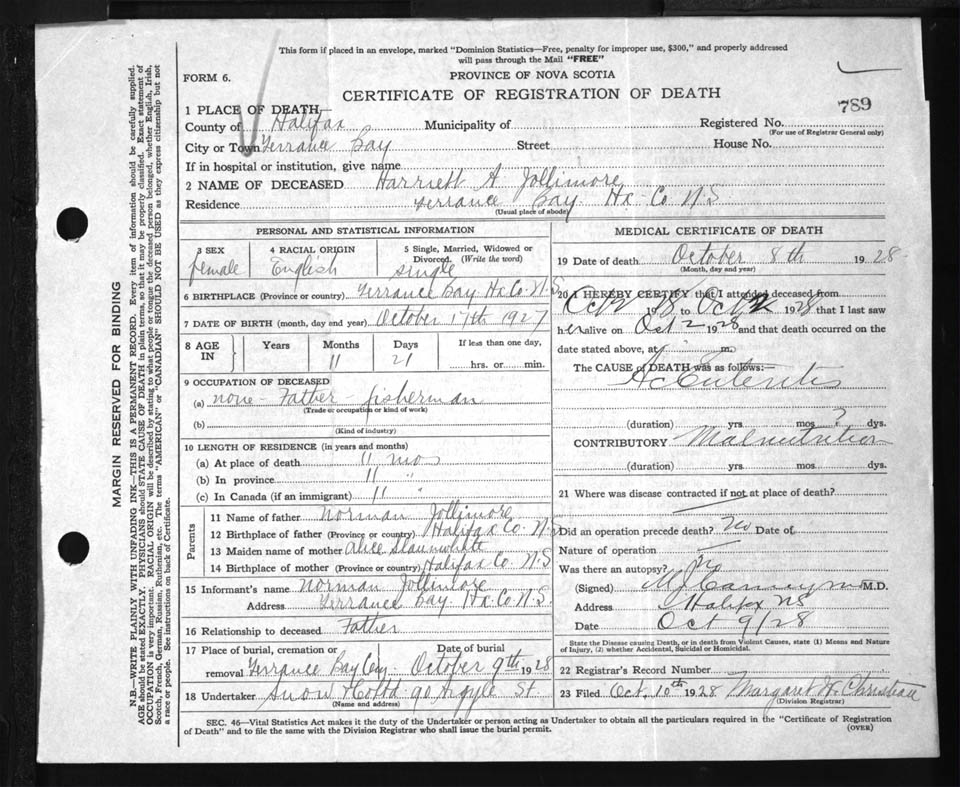 This form if placed in an envelope, marked "Dominion Statistics—Free, penalty for improper use, $300," and properly addressed
will pass through the Mail "FREE"
FORM 6.
PROVINCE OF NOVA SCOTIA
CERTIFICATE OF REGISTRATION OF DEATH
789
1 PLACE OF DEATH,—
County of Halifax Municipality of Registered No.
(For use of Registrar General only)
City or Town Terrance Bay Street House No.
If in hospital or institution, give name
2 NAME OF DECEASED Harriett A Jollimore
Residence Terrance Bay Hx Co N S
(Usual place of abode)
PERSONAL AND STATISTICAL INFORMATION
3 SEX 4 RACIAL ORIGIN 5 Single, Married, Widowed or
Divorced. (Write the word)
female English single
6 BIRTHPLACE (Province or country) Terrance Bay Hx Co. N. S
7 DATE OF BIRTH (month, day and year) October 17th 1927
8 AGE IN Years Months Days If less than one day,
11 21 hrs. or min.
9 OCCUPATION OF DECEASED
(a) none - Father - fisherman
(Trade or occupation or kind of work)
(b)
(Kind of industry)
10 LENGTH OF RESIDENCE (in years and months)
(a) At place of death 11 mos
(b) In province 11 "
(c) In Canada (if an immigrant) 11 "
Parents
11 Name of father Norman Jollimore
12 Birthplace of father (Province or country) Halifax Co. N. S
13 Maiden name of mother Alice Slaunwhite
14 Birthplace of mother (Province or country) Halifax Co N. S
15 Informant's name Norman Jollimore
Address Terrance Bay Hx. Co. N. S.
16 Relationship to deceased Father
17 Place of burial, cremation or Date of burial
removal Terrance Bay Cem. October 9th 1928
18 Undertaker Snow & Co Ltd 90 Argyle St.
(Name and address)
MEDICAL CERTIFICATE OF DEATH
19 Date of death October 8th 1928
(Month, day and year)
20 I HEREBY CERTIFY that I attended deceased from
Oct 2 1928 to Oct 2 1928 that I last saw
her alive on Oct 2 1928 and that death occurred on the
date stated above, at m.
The CAUSE of DEATH was as follows:—
Ac Enteritis
(duration) yrs mos ? dys.
CONTRIBUTORY Malnutrition
(duration) yrs mos dys.
21 Where was disease contracted if not at place of death?
Did an operation precede death? No Date of
Nature of operation
Was there an autopsy? No
(Signed) M.D.
Address Halifax NS
Date Oct 9/28
State the Disease causing Death, or in death from Violent Causes, state (1) Means and Nature
of Injury, (2) whether Accidental, Suicidal or Homicidal.
22 Registrar's Record Number
23 Filed Oct. 10th 1928 Margaret W. Christian
(Division Registrar)
SEC. 46—Vital Statistics Act makes it the duty of the Undertaker or person acting as Undertaker to obtain all the particulars required in the "Certificate of Registration
of Death" and to file the same with the Division Registrar who shall issue the burial permit.
(OVER)
MARGIN RESERVED FOR BINDING
N.B.—WRITE PLAINLY WITH UNFADING INK—THIS IS A PERMANENT RECORD. Every item of information should be carefully supplied.
AGE should be stated EXACTLY. PHYSICIANS should STATE CAUSE OF DEATH in plain terms, so that it may be properly classified. Exact statement of
OCCUPATION is very important. RACIAL ORIGIN will be described by stating to what people or tongue the deceased person belonged, whether English, Irish,
Scotch, French, German, Russian, Ruthenian, etc. The terms "AMERICAN" or "CANADIAN" SHOULD NOT BE USED as they express citizenship but not
a race or people. See instructions on back of Certificate.